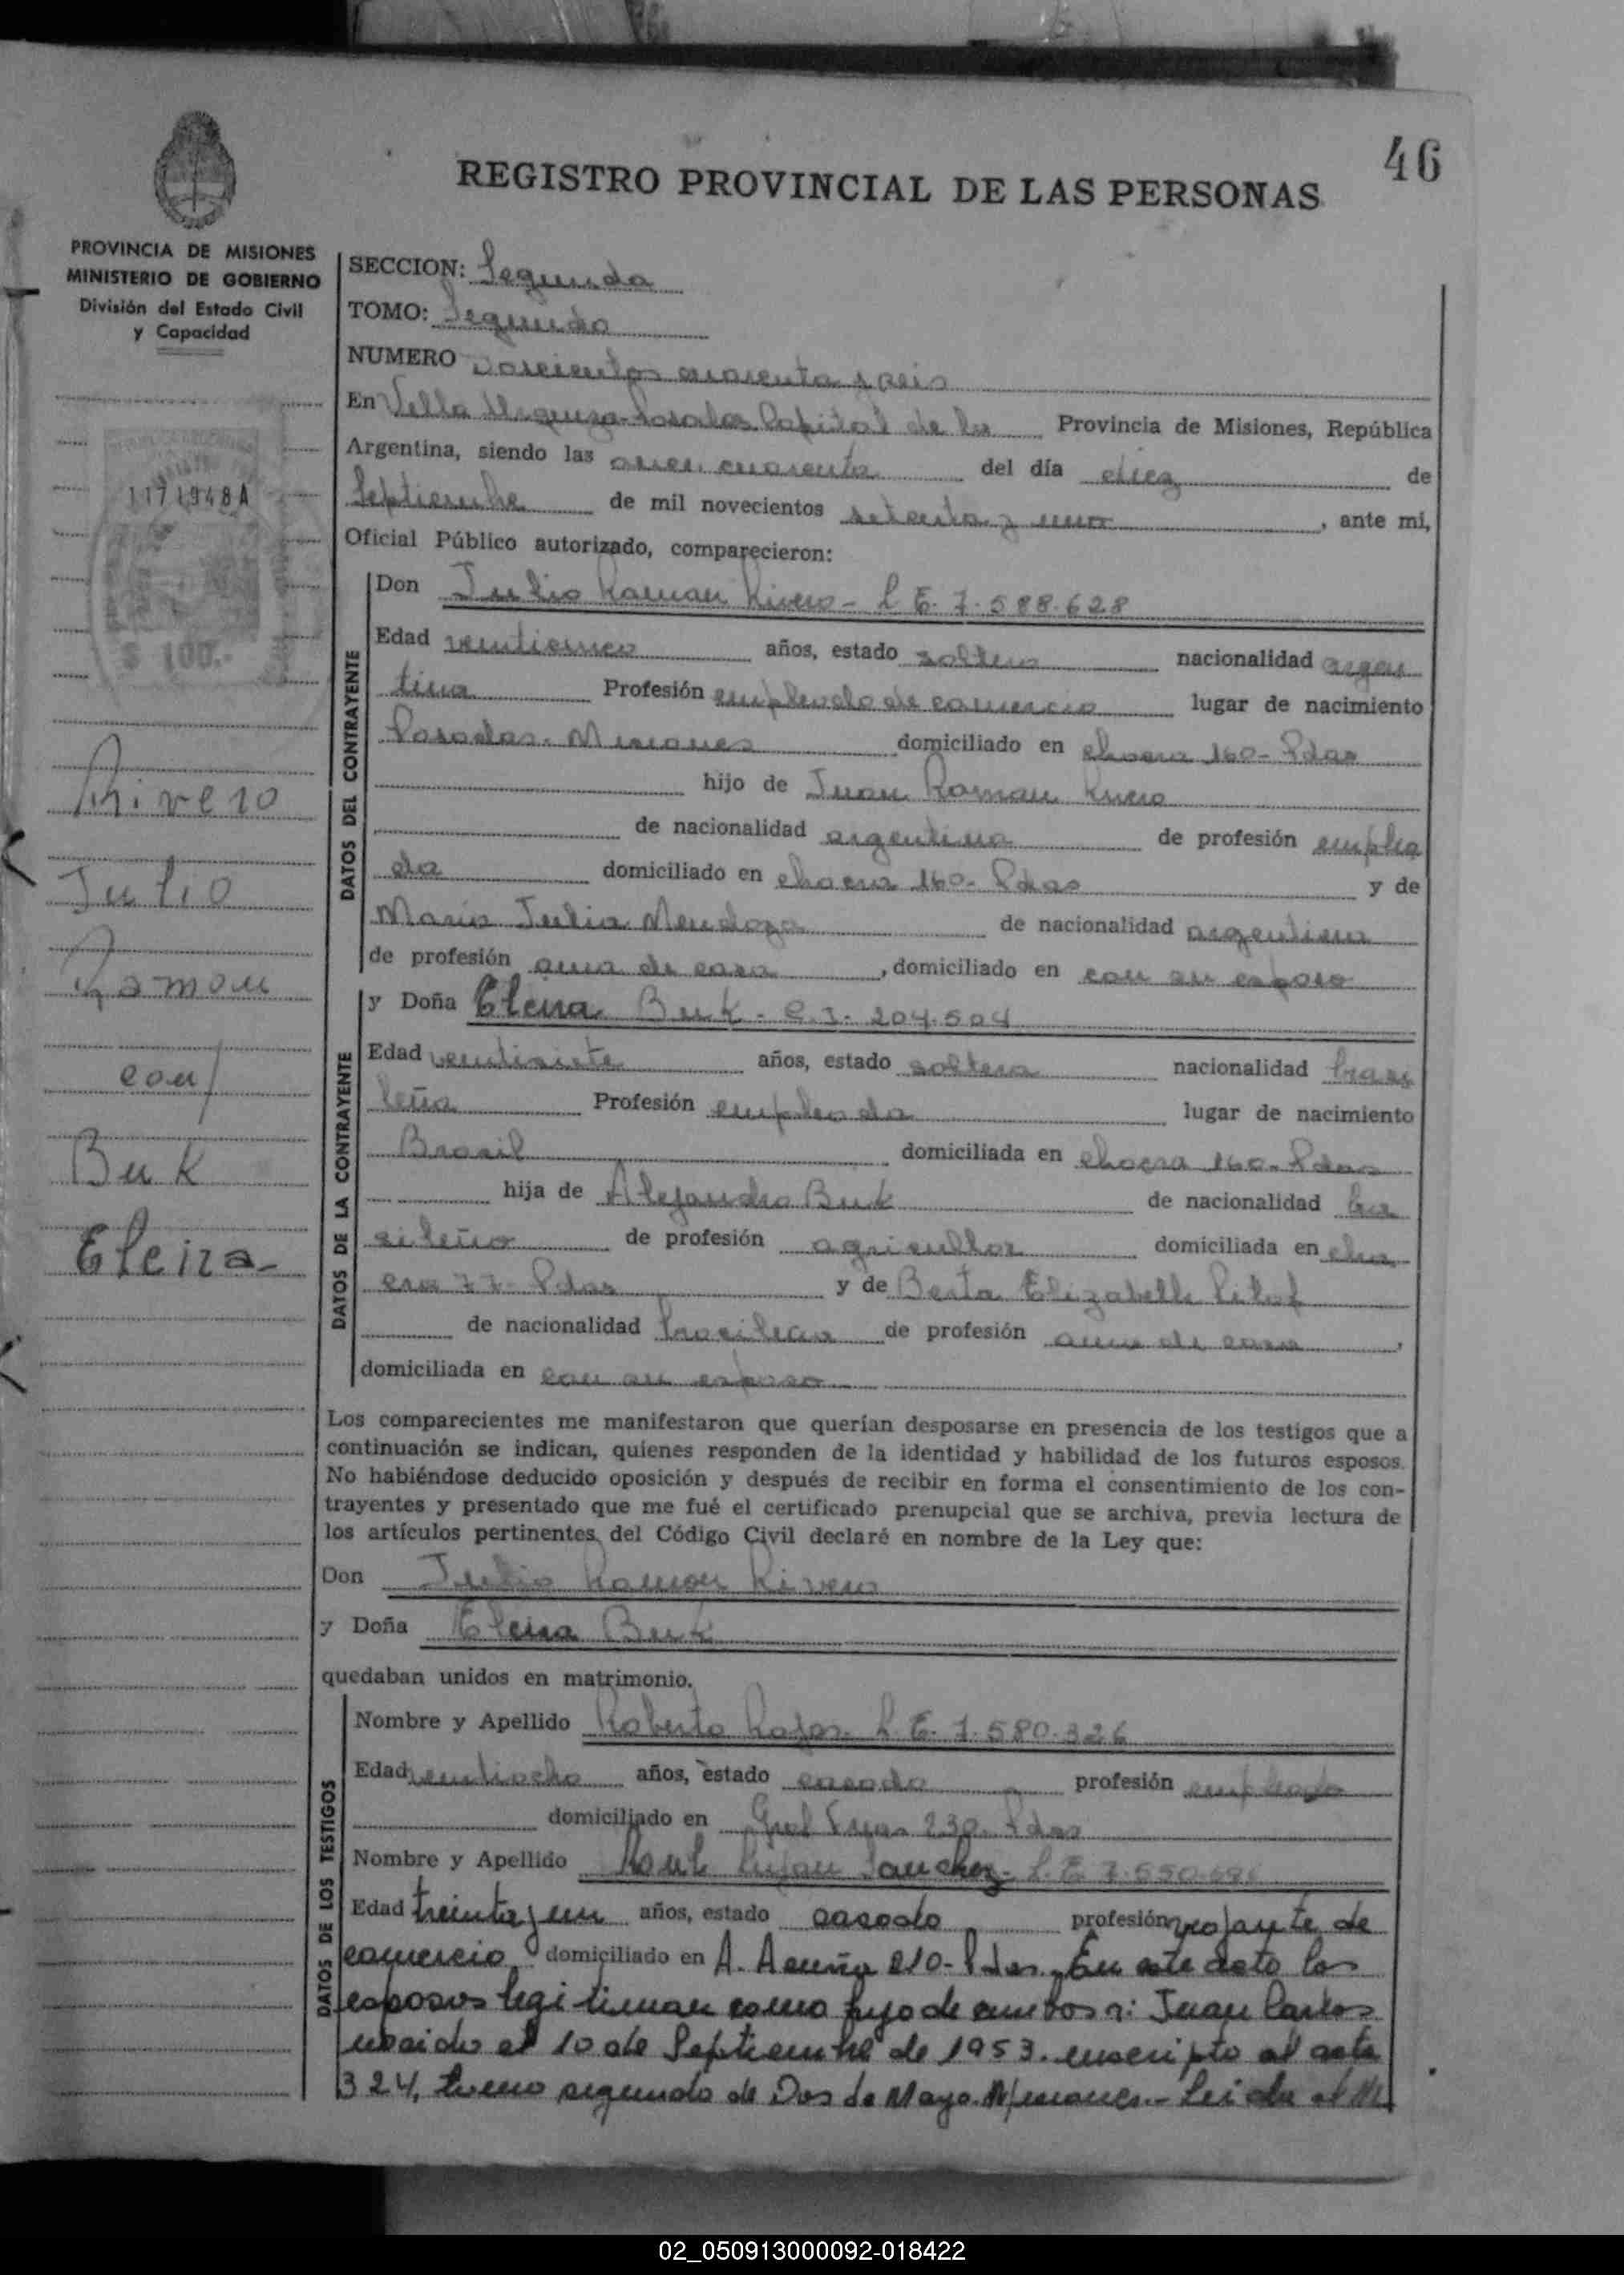 46
REGISTRO PROVINCIAL DE LAS PERSONAS
PROVINCIA DE MISIONES
MINISTERIO DE GOBIERNO
División del Estado Civil
y Capacidad
1171948A
$ 100.-
Rivero
Julio
Ramon
con/
Buk
Eleira-
SECCION: Segunda
TOMO: Segundo
NUMERO Doscientos cuarenta y seis
En Villa Urquiza-Posadas Capital de la Provincia de Misiones, República
Argentina, siendo las once, cuarenta del día diez de
Septiembre de mil novecientos setenta y uno, ante mi,
Oficial Público autorizado, comparecieron:
DATOS DEL CONTRAYENTE
Don Julio Ramon Rivero - L.E. 7.588.628
Edad veinticinco años, estado soltero nacionalidad argen
tina Profesión empleado de comercio lugar de nacimiento
Posadas-Misiones domiciliado en chacra 160-Pdas
hijo de Juan Roman Rivero
de nacionalidad argentina de profesión emplea
do domiciliado en chacra 160-Pdas y de
Maria Julia Mendoza de nacionalidad argentina
de profesión ama de casa, domiciliado en con su esposo
DATOS DE LA CONTRAYENTE
y Doña Eleira Buk - C.I. 204.504
Edad veintisiete años, estado soltera nacionalidad brasi
leña Profesión empleada lugar de nacimiento
Brasil domiciliada en chacra 160-Pdas
hija de Alejandro Buk de nacionalidad bra
sileño de profesión agricultor domiciliada en cha
cra 77-Pdas y de Berta Elizabeth
de nacionalidad de profesión ama de casa,
domiciliada en con su esposo
Los comparecientes me manifestaron que querían desposarse en presencia de los testigos que a
continuación se indican, quienes responden de la identidad y habilidad de los futuros esposos.
No habiéndose deducido oposición y después de recibir en forma el consentimiento de los con-
trayentes y presentado que me fué el certificado prenupcial que se archiva, previa lectura de
los artículos pertinentes del Código Civil declaré en nombre de la Ley que:
Don Julio Ramon Rivero
y Doña Eleira Buk
quedaban unidos en matrimonio.
DATOS DE LOS TESTIGOS
Nombre y Apellido Roberto Rojas- L.E. 7.580.326
Edad veintiocho años, estado casado profesión empleado
domiciliado en Gral 230-Pdas
Nombre y Apellido Raul Lujan Sanchez- L.E.
Edad treinta y un años, estado casado profesión viajante de
comercio domiciliado en A. Acuña 210-Pdas. En este acto los
esposos legitiman como hijo de ambos a: Juan Carlos
nacido el 10 de Septiembre de 1953. inscripto al acta
324, tomo segundo de Dos de Mayo. Misiones.- Leida el
02_050913000092-018422